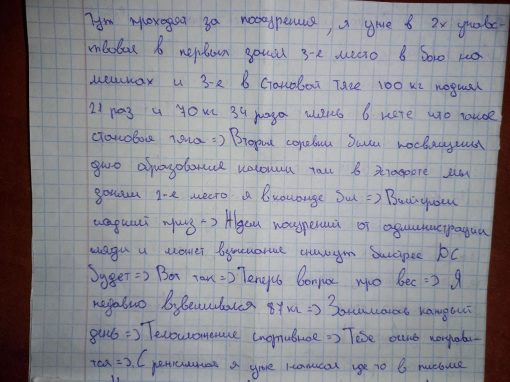 Тут проходят за поощрения, я уже в 2х участ-
твовал в первых занял 3-е место в бою на
мешках и 3-е в становой тяге 100 кг поднял
21 раз и 70 кг 34 раза глянь в нете что такое
становая тяга => Вторые соревы были посвящены
дню образование колонии там в эстафете мы
заняли 2-е место я в команде был => Выиграли
сладкий приз => Ждем поощрений от администрации
гляди и может взыскание снимут быстрее ДС
будет => Вот так => Теперь вопрос про вес => Я
недавно взвешивался 87 кг => Занимаюсь каждый
день => Телосложение спортивное => Тебе очень понрави-
тся => С я уже написал где то в письме